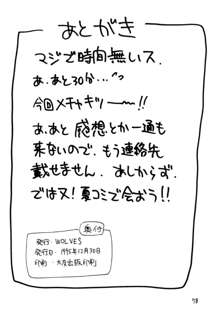 あとがき
マジで時間無いス.
あ.あと30分...
今回メチャギリ———!!
あ.あと 感想とか一通も
来ないので.もう連絡先
載せません.あしからず.
では又!夏コミで会おう!!
奥付
発行・WOLVES
発行日・1995年12月30日
印刷・大友出版印刷